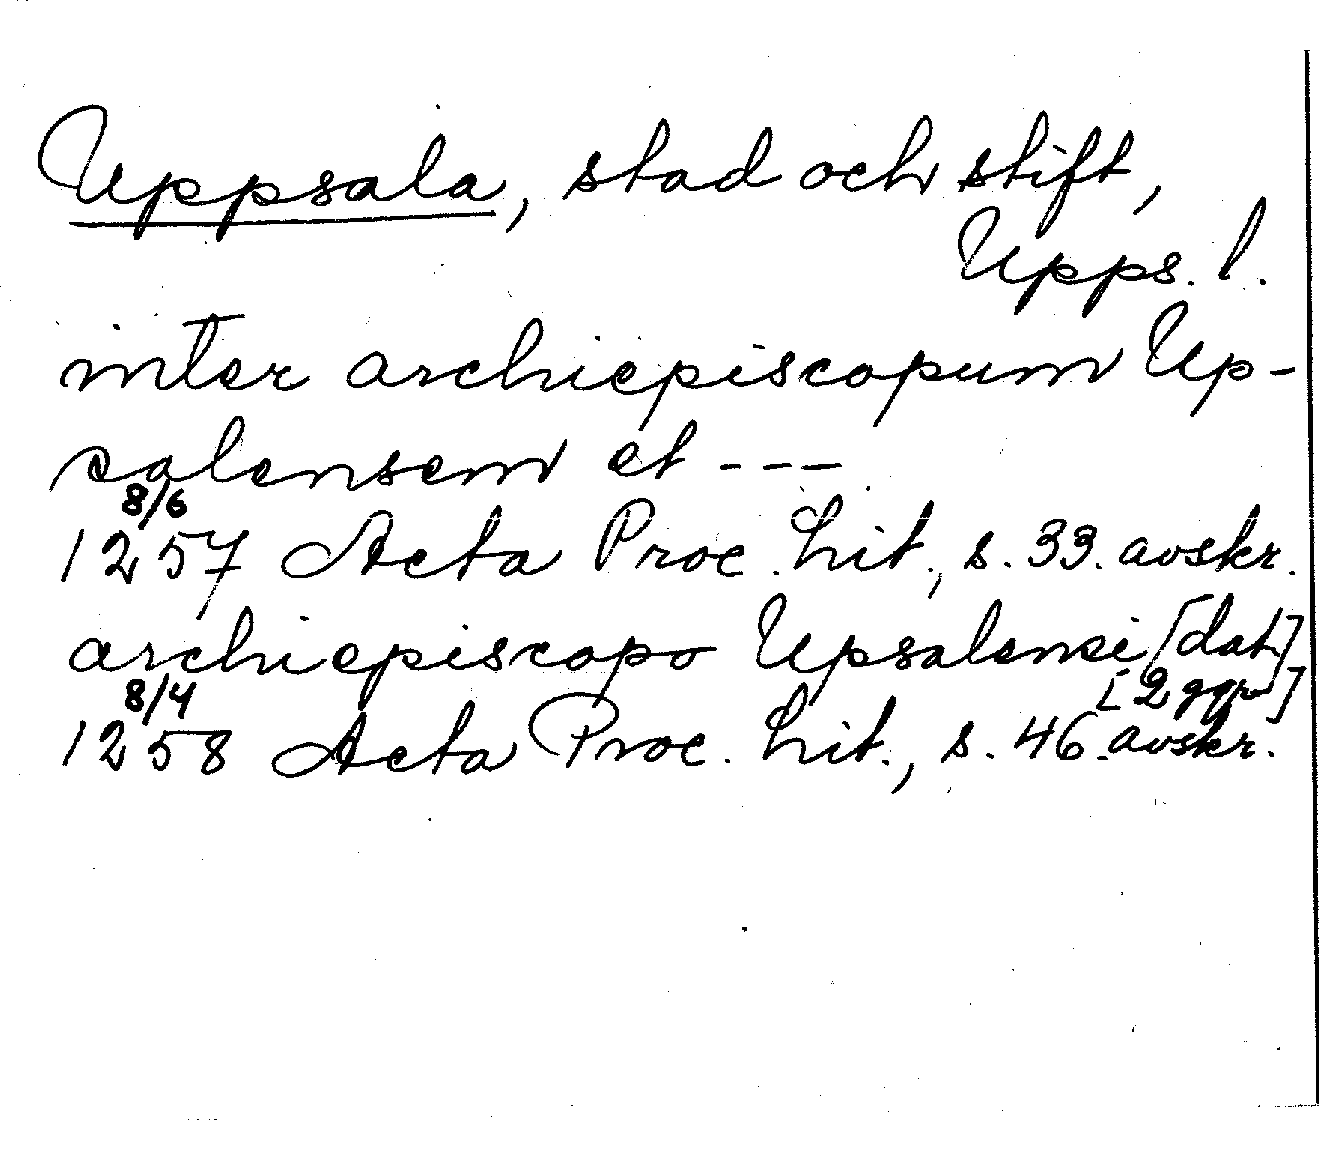 Uppsala, stad och stift,
Upps. l.
inter archiepiscopum Up-
salensem et ---
8/6
1257 Acta Proc. Lit., s. 33. avskr.
archiepiscopo Upsalensi [dat]
8/4 [2 ggr]
1258 Acta Proc. Lit., s. 46. avskr.